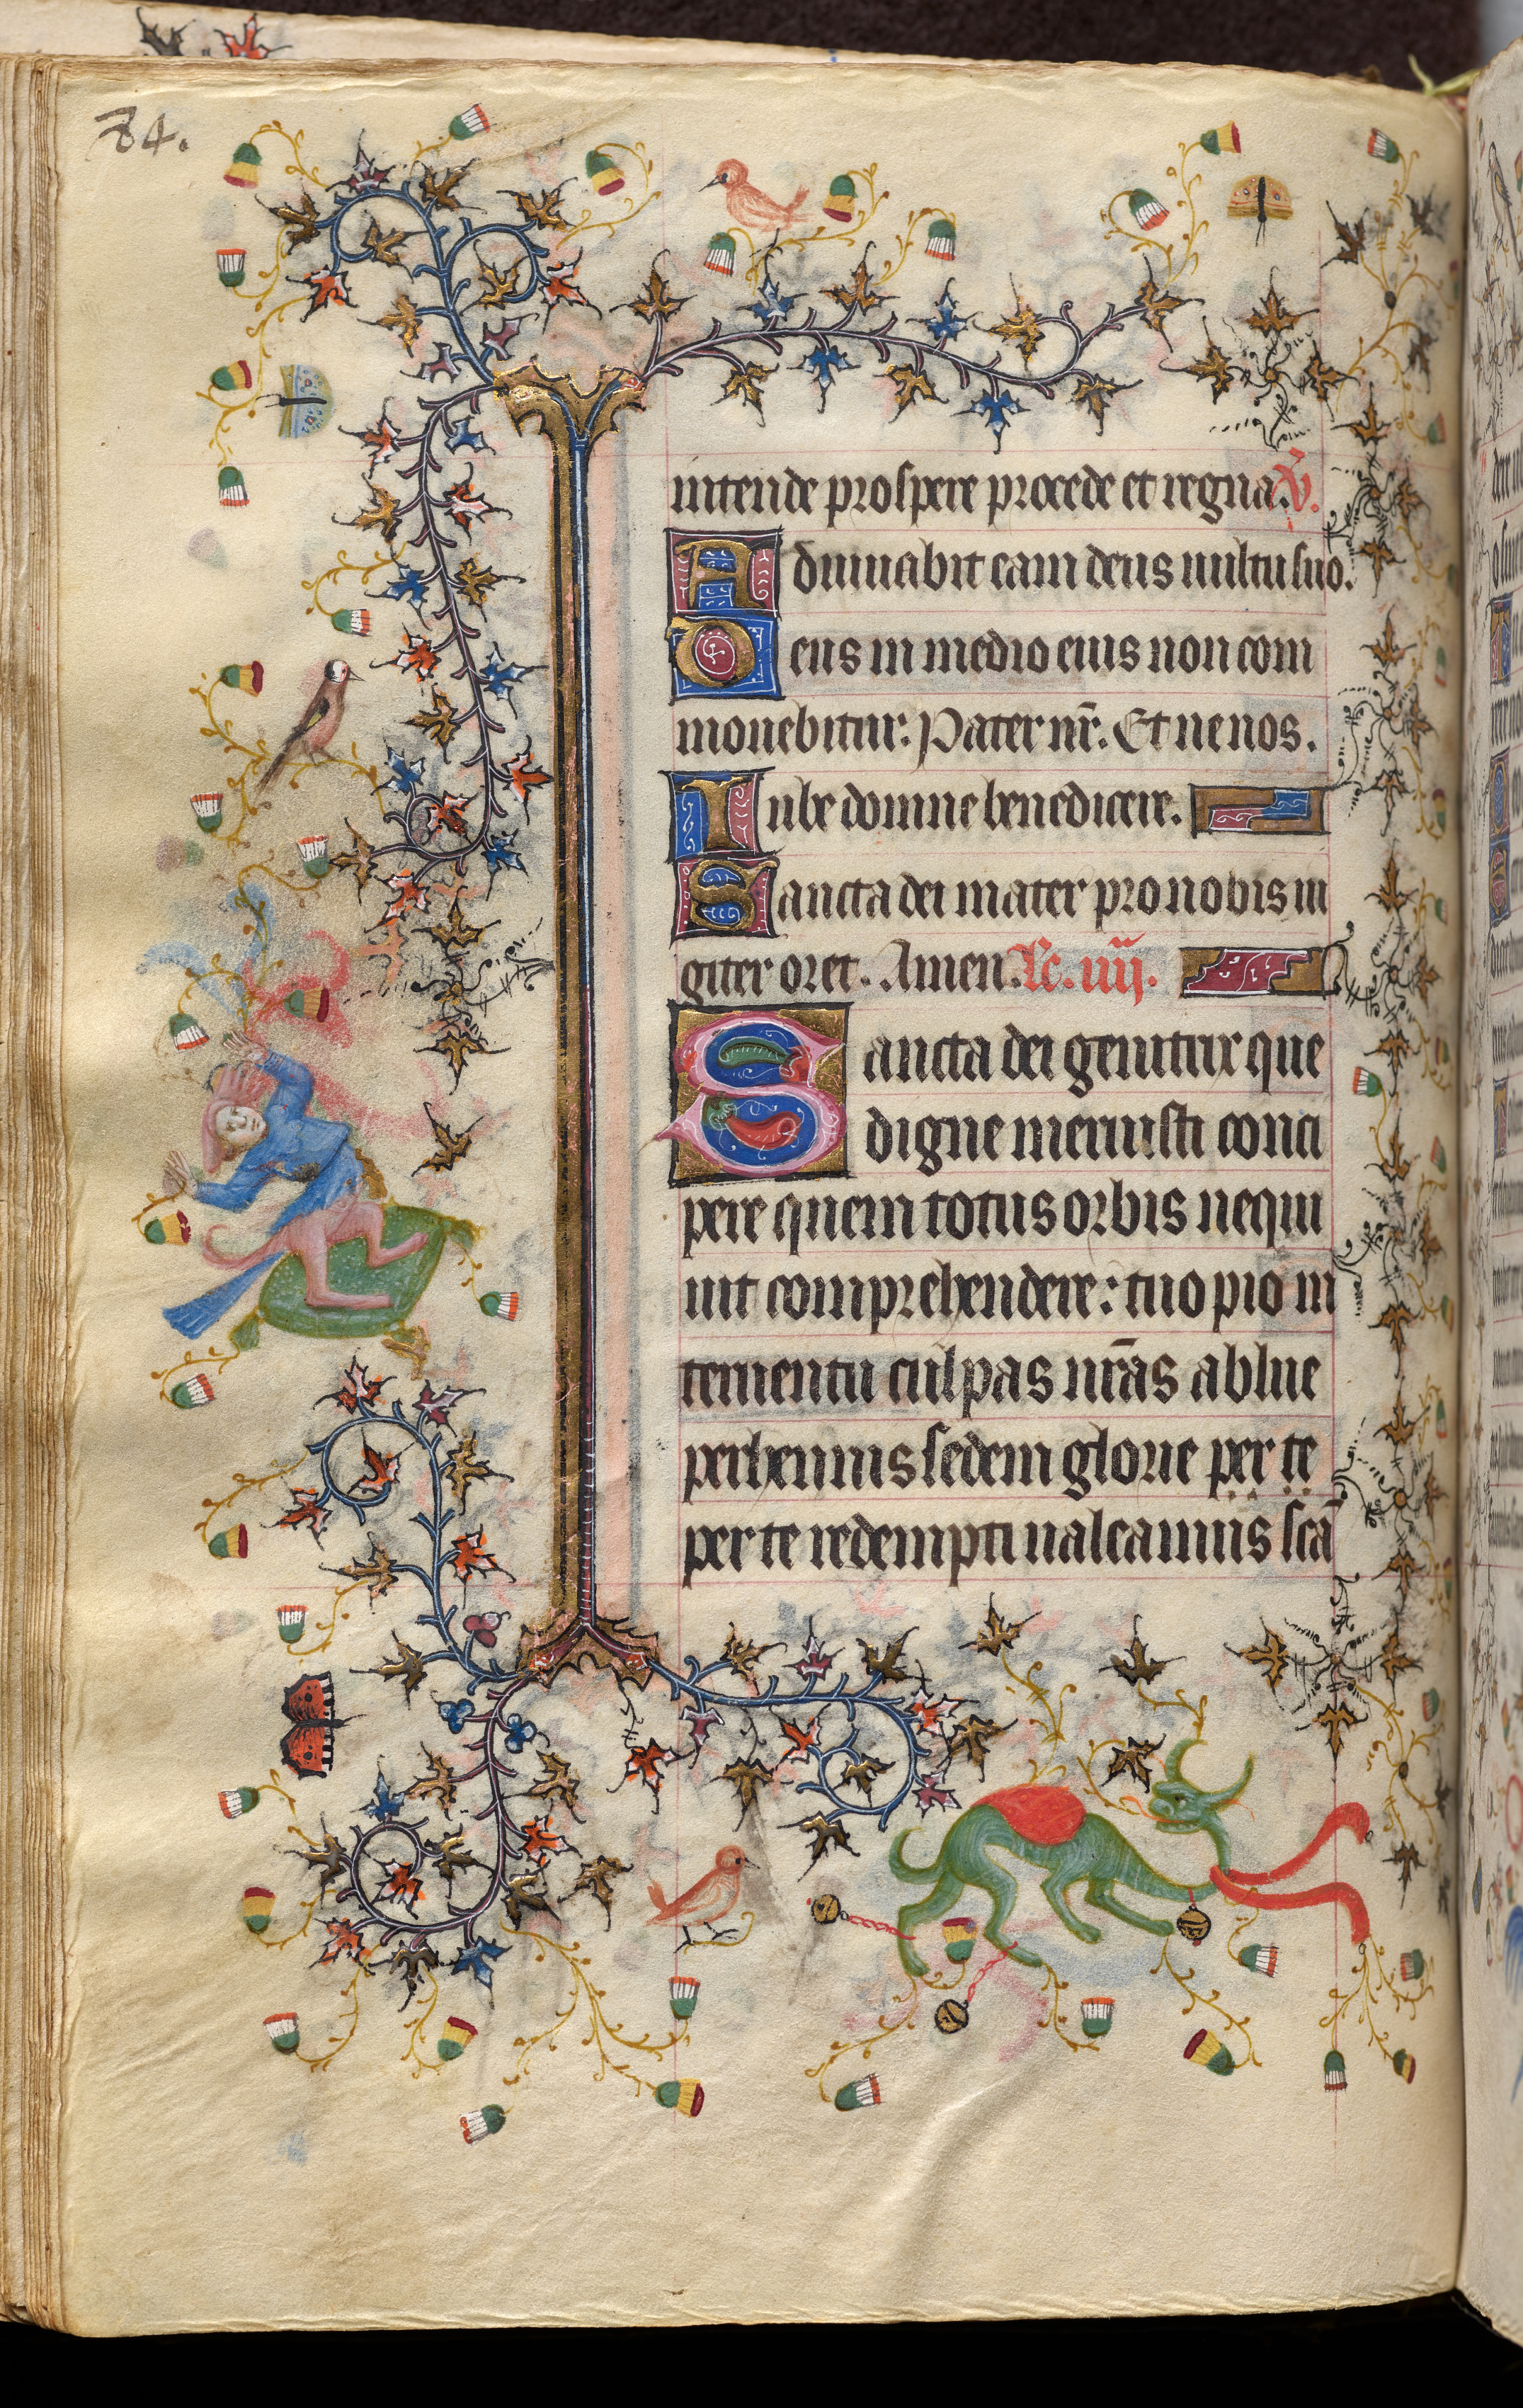 84.
intende prospere procede et regna. v̄.
Adiuuabit eam deus uultu suo.
Deus in medio eius non com
mouebitur. Pater nr̄. Et ne nos.
Iube domne benedicere.
Sancta dei mater pro nobis in
giter oret. Amen. Lc. iiij.
Sancta dei genitrix que
digne meruisti conci
pere quem totus orbis nequi
uit comprehendere: tuo pio in
teruentu culpas nr̄as ablue
perhennis sedem glorie per te
per te redempti ualeamus scā